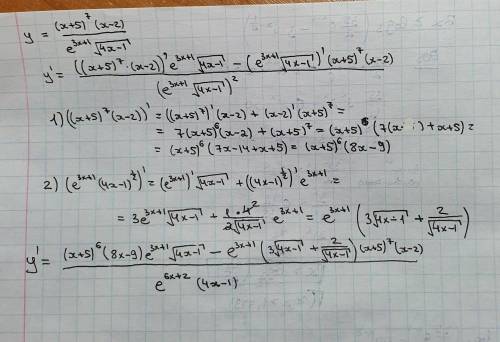 y = (x+5)⁷(x-2) / e^(3x+1) √(4x-1)
y' = (((x+5)⁷·(x-2))' e^(3x+1) √(4x-1) - (e^(3x+1) √(4x-1))' (x+5)⁷(x-2)) / (e^(3x+1) √(4x-1))²
1) ((x+5)⁷(x-2))' = ((x+5)⁷)'(x-2) + (x-2)'(x+5)⁷ =
= 7(x+5)⁶(x-2) + (x+5)⁷ = (x+5)⁶(7(x- ) + x+5) =
= (x+5)⁶(7x-14+x+5) = (x+5)⁶(8x-9)
2) (e^(3x+1) (4x-1)^(1/2))' = (e^(3x+1))' √(4x-1) + ((4x-1)^(1/2))' e^(3x+1) =
= 3e^(3x+1) √(4x-1) + (1·4²) / (2√(4x-1)) e^(3x+1) = e^(3x+1) (3√(4x-1) + 2/√(4x-1))
y' = ((x+5)⁶(8x-9)e^(3x+1) √(4x-1) - e^(3x+1) (3√(4x-1) + 2/√(4x-1)) (x+5)⁷(x-2)) / e^(6x+2) (4x-1)